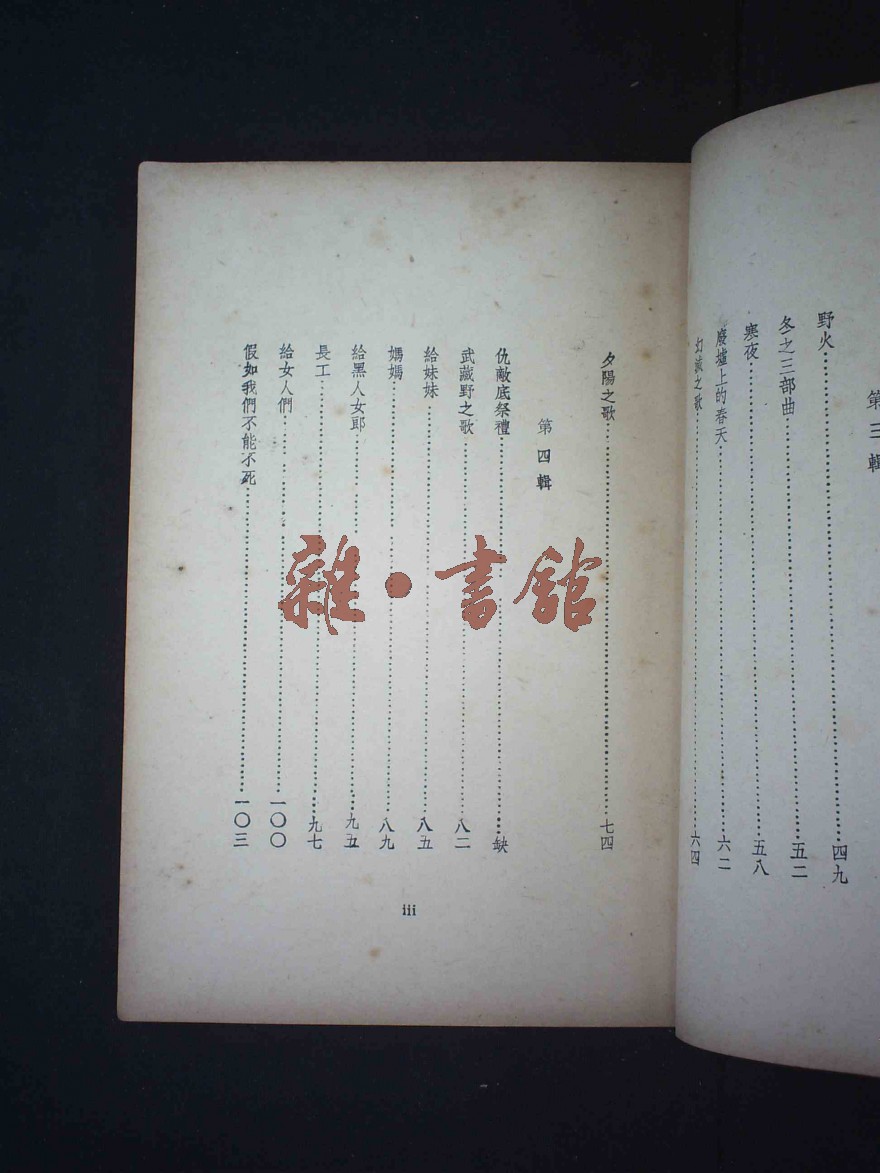 第三輯
野火……四九
冬之三部曲……五二
寒夜……五八
廢墟上的春天……六二
幻滅之歌……六四
夕陽之歌……七四
第四輯
仇敵底祭禮……缺
武藏野之歌……八二
給妹妹……八五
媽媽……八九
給黑人女郎……九五
長工……九七
給女人們……一〇〇
假如我們不能不死……一〇三
iii
雜·書館